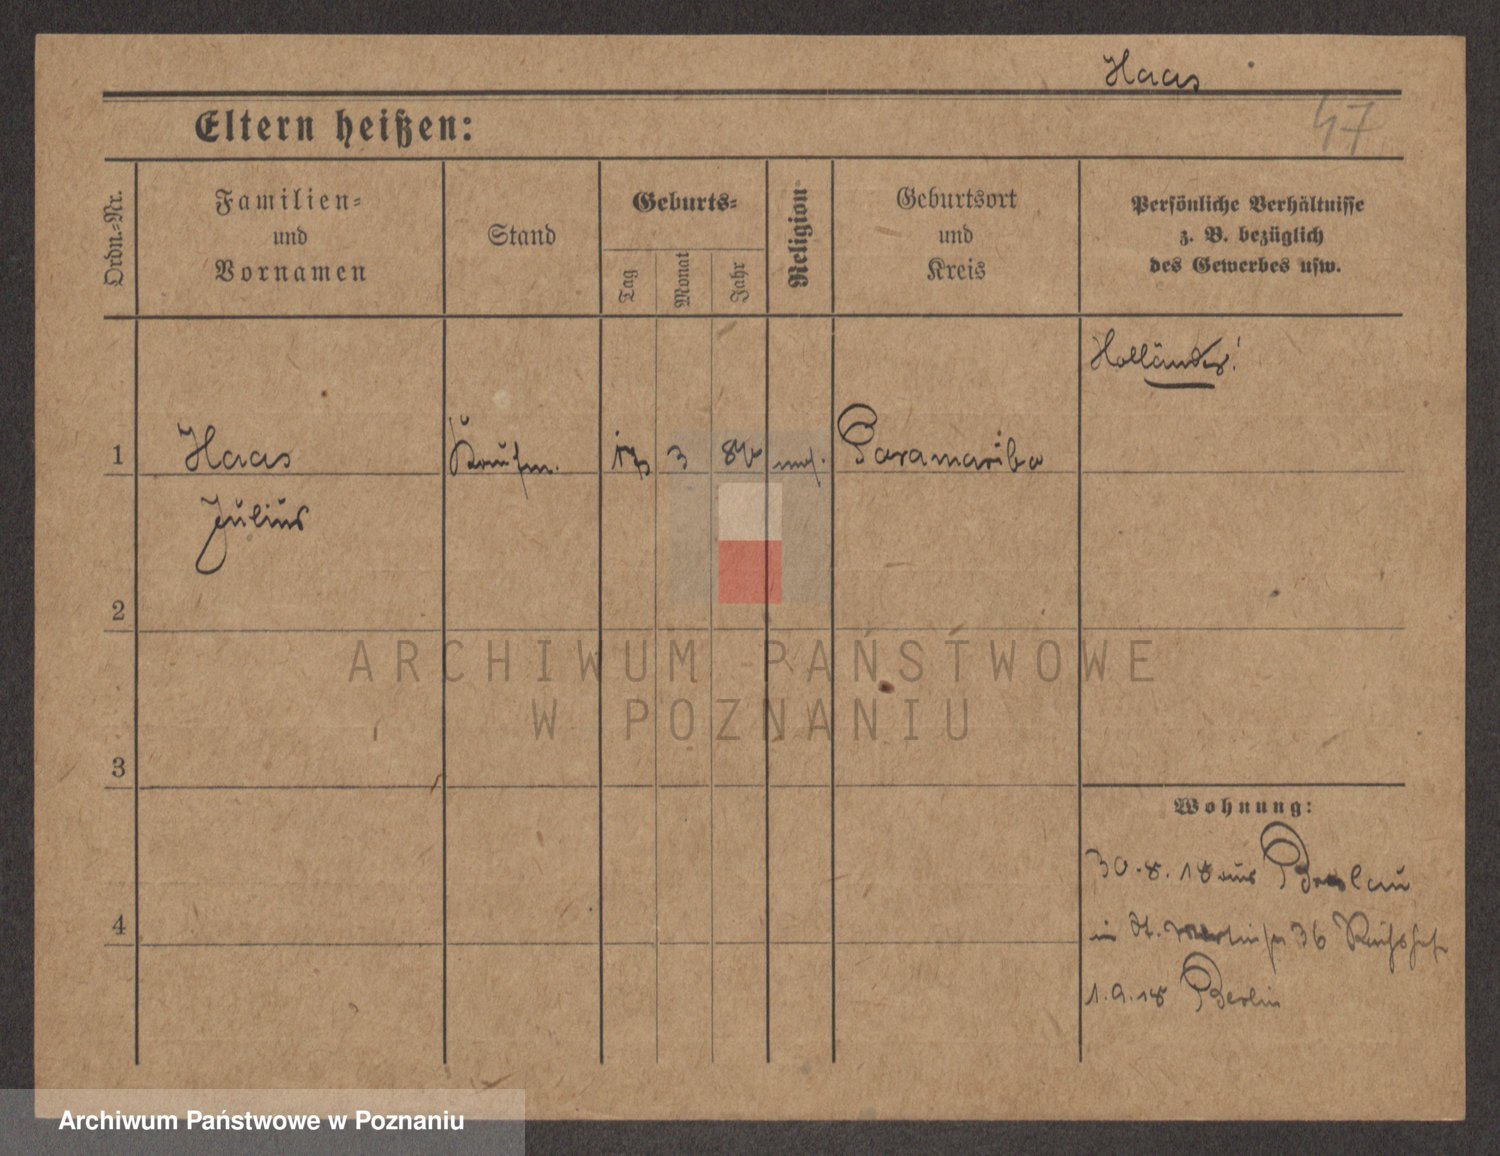 Haas
47
Eltern heißen:
Ordn.-Nr.
Familien-
und
Vornamen
Stand
Geburts-
Tag
Monat
Jahr
Religion
Geburtsort
und
Kreis
Persönliche Verhältnisse
z. B. bezüglich
des Gewerbes usw.
Holländer!
1
Haas
Kaufm.
3
Paramaribo
Julius
2
ARCHIWUM PAŃSTWOWE
W POZNANIU
3
Wohnung:
30.8.18 aus Breslau
4
in St. Martinstr 36 Reichshof
1.9.18 Berlin
Archiwum Państwowe w Poznaniu